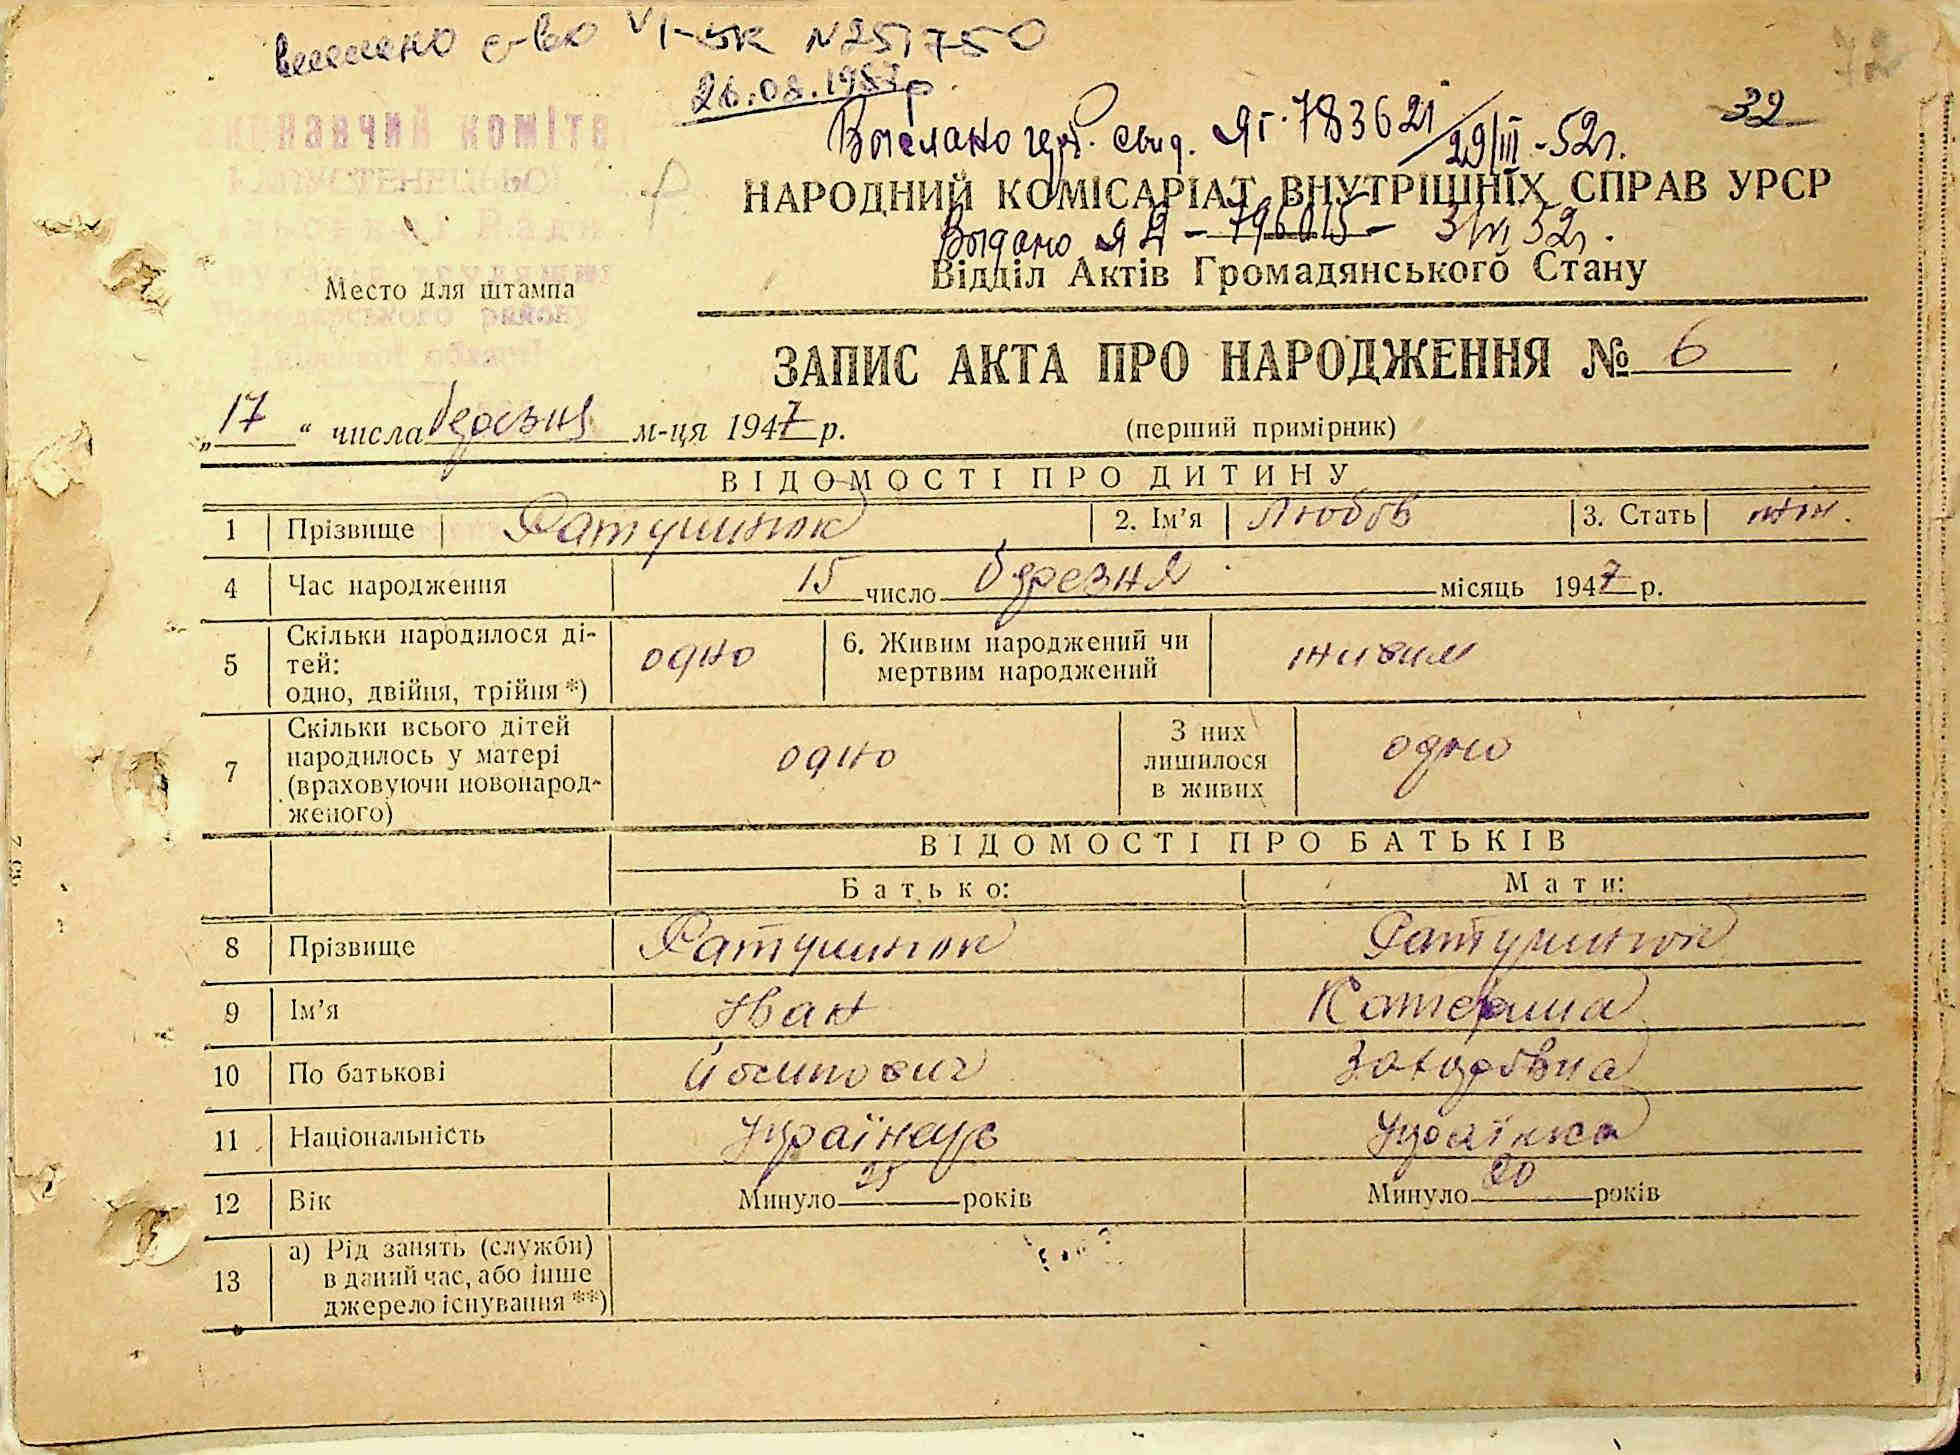 внесено с-во VI-ЯК N 251750
26.08.1987р.
72
32
Выслано герб. свид. ЯГ-783621 29/III-52г.
НАРОДНИЙ КОМІСАРІАТ ВНУТРІШНІХ СПРАВ УРСР
Выдано ЯД - 796015 -
Відділ Актів Громадянського Стану
Место для штампа
району
ЗАПИС АКТА ПРО НАРОДЖЕННЯ № 6
„17“ числа березня м-ця 1947 р.
(перший примірник)
ВІДОМОСТІ ПРО ДИТИНУ
1 Прізвище Ратушнюк 2. Ім’я Любов 3. Стать жін.
4 Час народження 15 число березня місяць 1947 р.
5 Скільки народилося ді-
тей:
одно, двійня, трійня *) одно 6. Живим народжений чи
мертвим народжений живим
7 Скільки всього дітей
народилось у матері
(враховуючи новонарод-
женого) одно З них
лишилося
в живих одно
ВІДОМОСТІ ПРО БАТЬКІВ
Батько: Мати:
8 Прізвище Ратушнюк Ратушнюк
9 Ім’я Іван Катерина
10 По батькові Йосипович Захарівна
11 Національність Українець Українка
12 Вік Минуло 25 років Минуло 20 років
13 а) Рід занять (служби)
в даний час, або інше
джерело існування **)